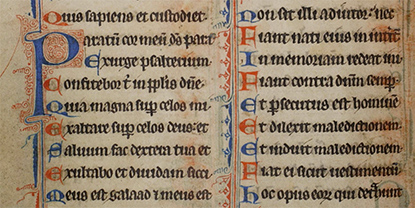 Quis sapiens et custodiet
Paratū cor meū ds̄ parat
Exurge psalterium
Confitebor t̄ in pp̄lis dn̄e
Quia magna sup̄ celos mi
Exaltare sup̄ celos deus: et
Saluum fac dextera tua et
Exultabo et diuidam sicci
Meus est galaad ⁊ meus est
Non sit illi adiutor: nec
Fiant nati eius in interit̄
In memoriam redeat ini
Fiant contra dūm semp̄
Et p̄secutus est hominē
Et dilexit maledictionem
Et induit maledictionem
Fiat ei sicut uestimentū
Hoc opus eoꝝ qui det̄hunt